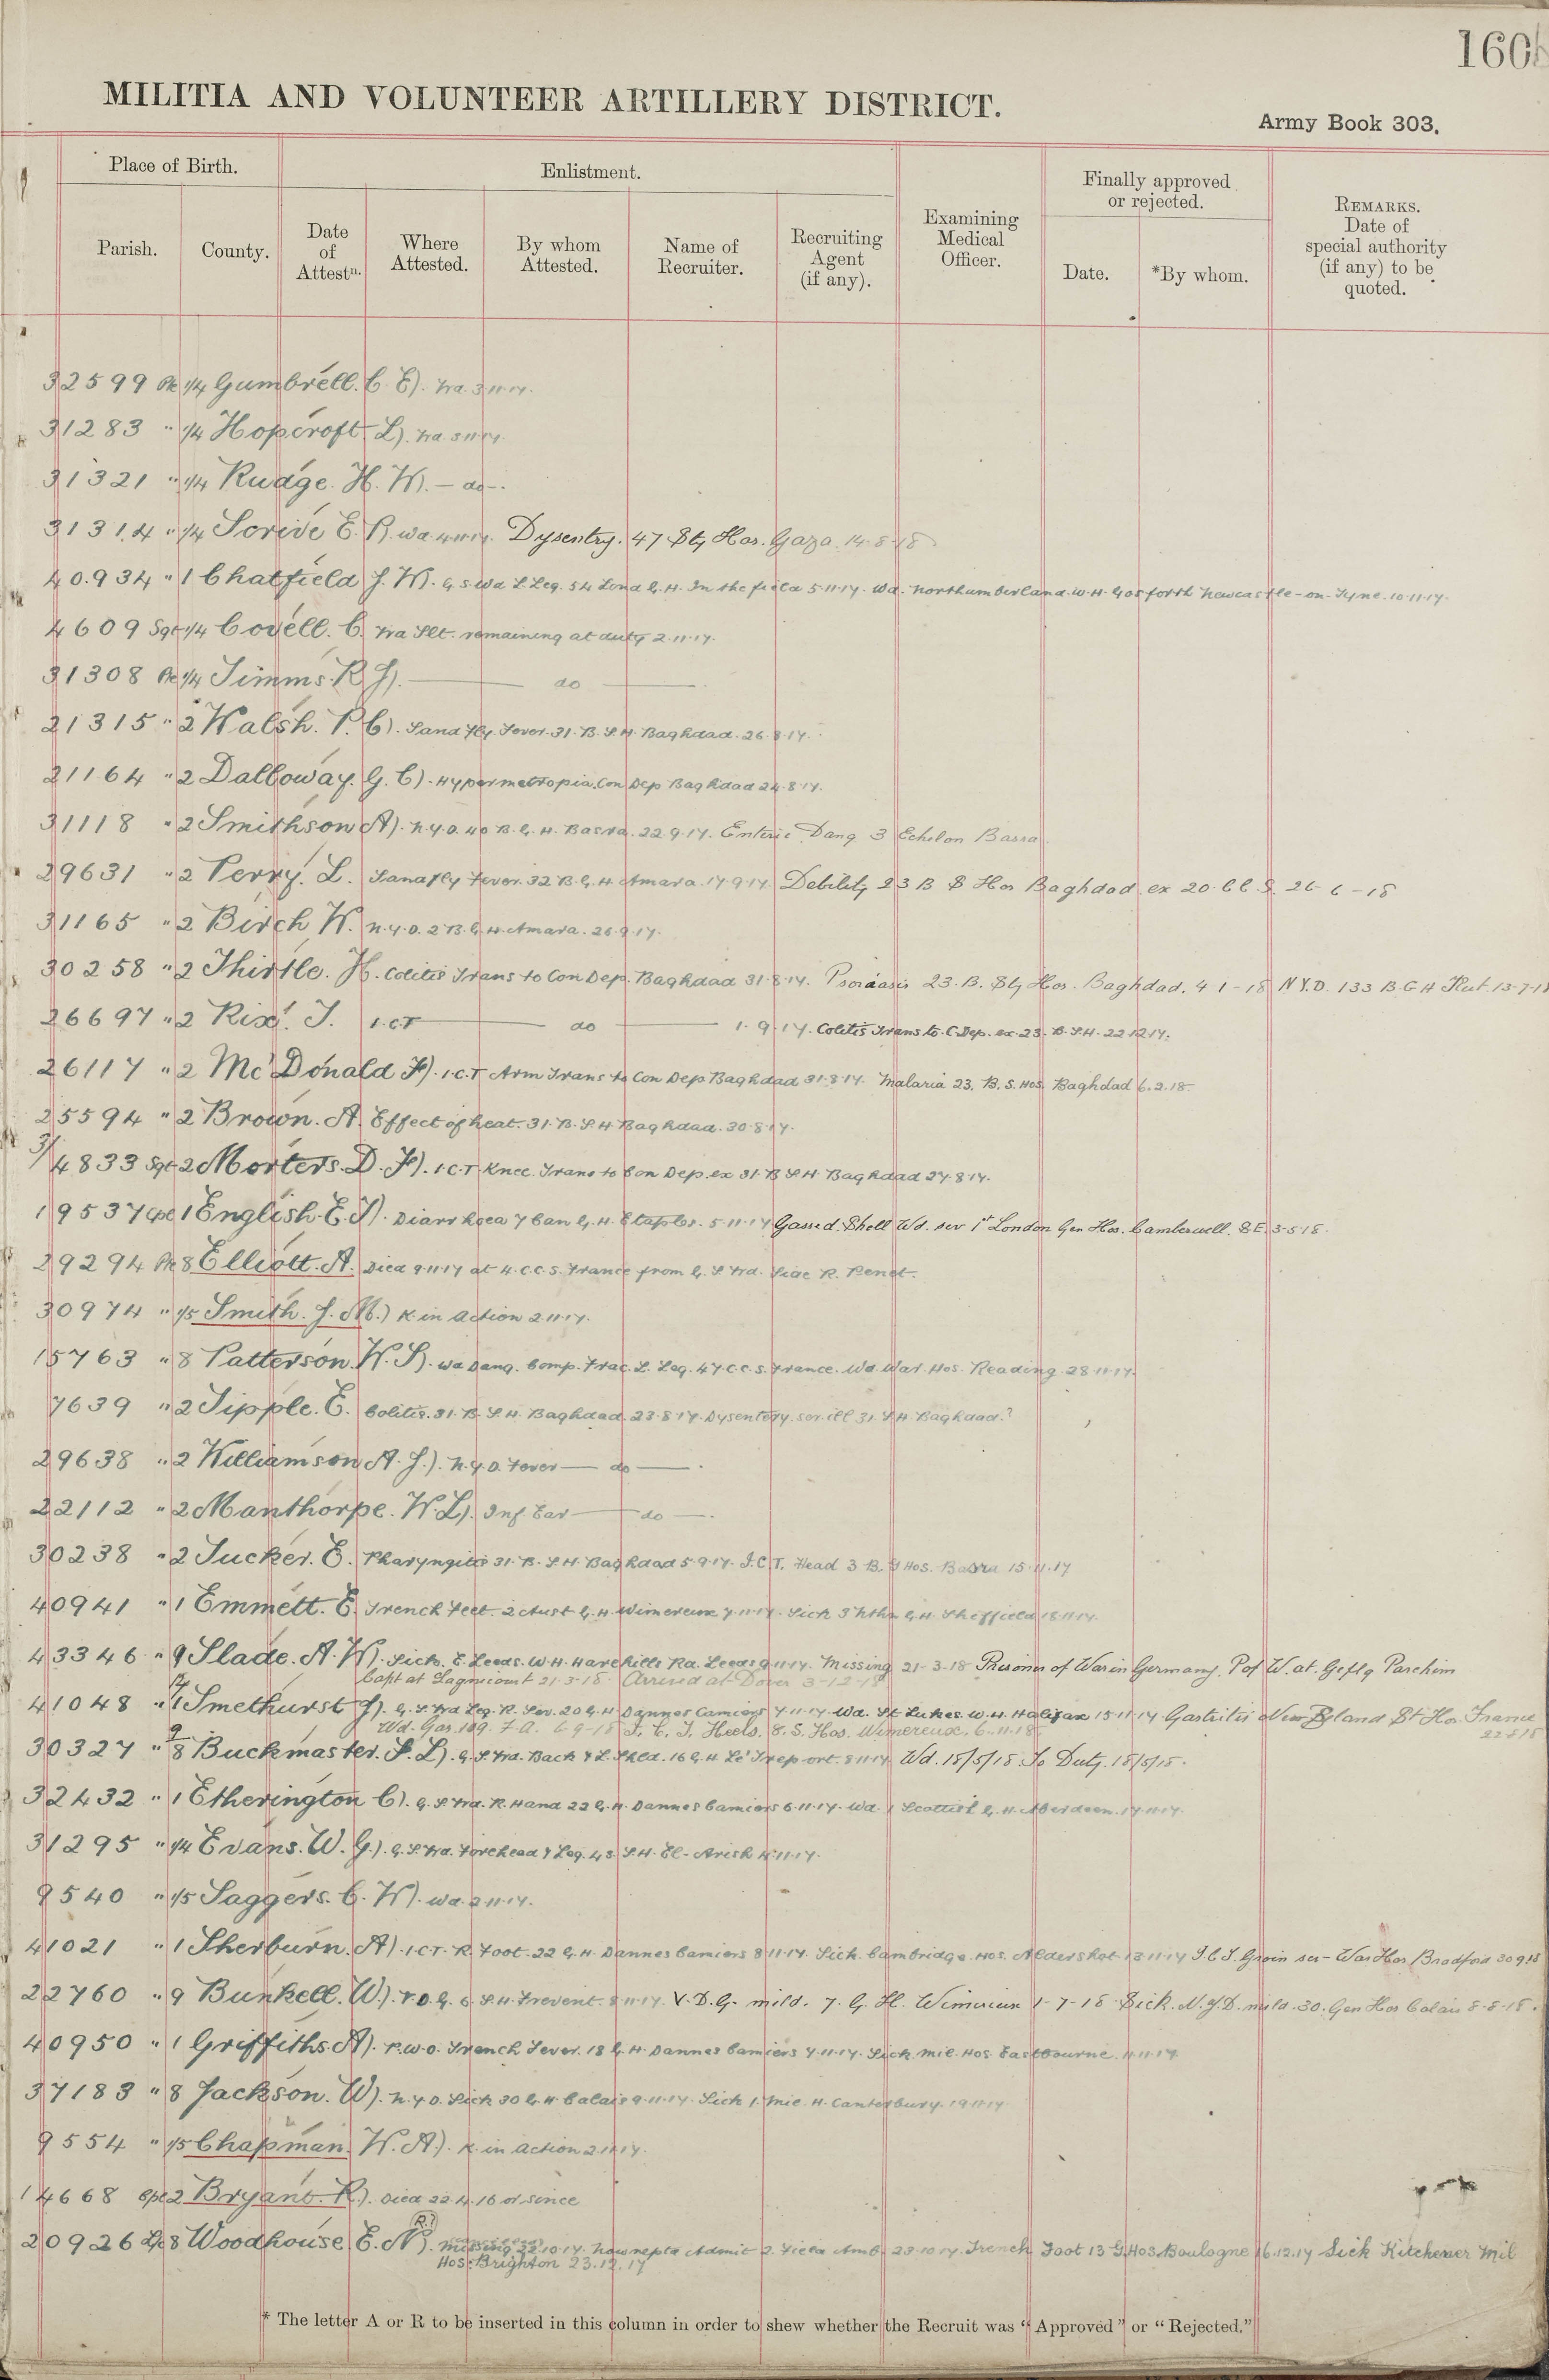 160
MILITIA AND VOLUNTEER ARTILLERY DISTRICT.
Army Book 303.
Place of Birth.
Enlistment.
Finally approved or rejected.
Parish.
County.
Date of Attestn.
Where Attested.
By whom Attested.
Name of Recruiter.
Recruiting Agent (if any).
Examining Medical Officer.
Date.
*By whom.
REMARKS. Date of special authority (if any) to be quoted.
32599 Pte 1/4 Gumbrell. C. E). Wa. 3.11.17.
31283 " 1/4 Hopcroft L). Wa. 3.11.17.
31321 " 1/4 Rudge. H. W). — do —.
31314 " 1/4 Scrive E. R. Wa 4.11.17. Dysentry. 47 Sty Hos. Gaza. 14-8-18
40934 " 1 Chatfield J. W). G.S. Wd L. Leg. 54 Lond G.H. In the field 5.11.17. Wd. Northumberland. W.H. Gosforth Newcastle-on-Tyne. 10.11.17.
4609 Sgt 1/4 Covell. C. Wa Slt. remaining at duty 2.11.17.
31308 Pte 1/4 Timms. R J). — do —
21315 " 2 Walsh. P. C). Sand Fly Fever. 31. B. S. H. Baghdad. 26.8.17.
21164 " 2 Dalloway. G. C). Hypermetropia. Con Dep Baghdad 24.8.17.
31118 " 2 Smithson A). N.Y.D. 40 B. G. H. Basra. 22.9.17. Enteric Dang 3 Echelon Basra
29631 " 2 Perry. L. Sandfly Fever. 32 B. G. H Amara. 17.9.17. Debility 23 B S Hos Baghdad ex 20. CC. S. 26-6-18
31165 " 2 Birch W. N.Y.D. 2 B. G. H. Amara. 26.9.17.
30258 " 2 Thirtle. H. Colitis Trans to Con Dep. Baghdad 31.8.17. Psoriasis 23. B. Sty Hos. Baghdad. 4-1-18 N.Y.D. 133 B.G H Kut. 13-7-18
26697 " 2 Rix. J. I.C.T — do — 1.9.17. Colitis Trans to C. Dep. ex. 23. B. S.H. 22.12.17.
26117 " 2 McDonald F). I.C.T Arm Trans to Con Dep Baghdad 31.8.17. Malaria 23. B. S. Hos Baghdad 6.2.18.
25594 " 2 Brown. A. Effect of heat. 31. B. S. H Baghdad. 30.8.17.
3/4833 Sgt 2 Morters. D. F). I.C.T Knee. Trans to Con Dep. ex 31. B S H. Baghdad 27.8.17.
19537 Cpl 1 English. E. J). Diarrhoea 7 Can G. H. Etaples. 5.11.17 Gassed. Shell Wd. sev 1st London Gen Hos. Camberwell. S E. 3-5-18.
29294 Pte 8 Elliott. A. Died 9.11.17 at 4. C.C.S. France from G. S. Wd. Side R. Penet.
30974 " 1/5 Smith. J. M.) K in action 2.11.17.
15763 " 8 Patterson W. S). Wd Dang. Comp. Frac. L. Leg. 47 C.C.S. France. Wd War Hos. Reading 28.11.17.
7639 " 2 Tipple. E. Colitis. 31. B. S. H. Baghdad. 23.8.17. Dysentery. ser. ill 31. S H. Baghdad.?
29638 " 2 Williamson A. J.). N.Y.D. Fever — do —.
22112 " 2 Manthorpe. W. L). Inf. Ear — do —.
30238 " 2 Tucker. E. Pharyngitis 31. B. S. H. Baghdad 5.9.17. I.C.T. Head 3 B. G Hos. Basra 15.11.17
40941 " 1 Emmett. E. Trench Feet. 2 Aust G. H. Wimereux 7.11.17. Sick 3 Nthn G. H. Sheffield 18.11.17.
43346 " 9 Slade. A. W). Sick. E. Leeds. W. H. Harehills Rd. Leeds 9.11.17. Missing 21-3-18 Prisoner of War in Germany. P of W. at. Gefl g Parchim
Capt at Lagnicourt 21-3-18 Arrived at Dover 3-12-18
41048 " 1 Smethurst J). G. S. Wd Leg. R. Sev. 20 G. H Dannes Camiers 7.11.17 Wd. St Lukes. W. H. Halifax 15.11.17 Gastritis New Zealand St Hos France 22.5.18
Wd. Gas. 109. F. A. 6-9-18 I. C. T. Heels. 8. S. Hos. Wimereux. 6.11.18
30327 " 8 Buckmaster. S. L). G. S. Wd. Back & L. Shld. 16 G. H Le Treport. 8.11.17 Wd. 15/5/18. To Duty. 18/5/18.
32432 " 1 Etherington C). G. S. Wd. R. Hand 22 G. H. Dannes Camiers 6.11.17. Wd. 1 Scottish G. H. Aberdeen. 17.11.17.
31295 " 1/4 Evans. W. G.). G. S. Wd. Forehead & Leg. 43 S. H. El-Arish 4.11.17.
9540 " 1/5 Saggers. C. W). Wd. 2.11.17.
41021 " 1 Sherburn. A). I.C.T. R. Foot. 22 G. H. Dannes Camiers 8.11.17. Sick. Cambridge. Hos. Aldershot 13.11.17 I C T. Groin sev - War Hos Bradford 30 9.18
22760 " 9 Bunkell. W). V.D.G. 6. S. H. Frevent. 8.11.17. V. D. G. mild. 7. G. H. Wimereux 1-7-18 Sick. N.Y.D. mild. 30. Gen Hos Calais 8-8-18.
40950 " 1 Griffiths. A). P.U.O. Trench Fever. 18 G. H. Dannes Camiers 7.11.17. Sick Mil. Hos. Eastbourne. 11.11.17
37183 " 8 Jackson. W). N.Y.D. Sick 30 G. H. Calais 9.11.17. Sick 1. Mil. H. Canterbury. 19.11.17
9554 " 1/5 Chapman. W. A). K. in action 2.11.17.
14668 Cpl 2 Bryant. R). Died 22.4.16 or since
20926 L/c 8 Woodhouse E. N). (R.?) Missing 22.10.17. Now reptd Admit 2. Field Amb. 23.10.17. Trench Foot 13 G. Hos. Boulogne 16.12.17 Sick Kitchener Mil
Hos. Brighton 23.12.17
* The letter A or R to be inserted in this column in order to shew whether the Recruit was "Approved" or "Rejected."